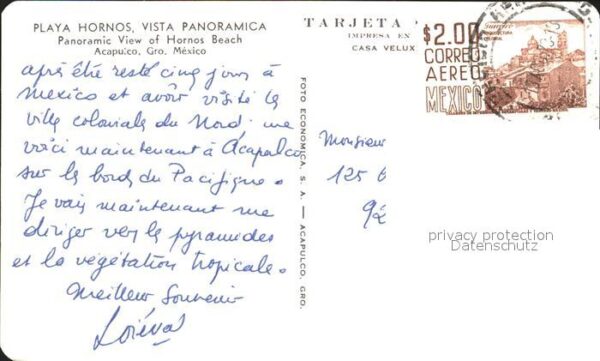 PLAYA HORNOS, VISTA PANORAMICA
Panoramic View of Hornos Beach
Acapulco, Gro. México
après être resté cinq jours à
Mexico et avoir visité la
ville coloniale du Nord. me
voici maintenant à Acapulco
sur le bord du Pacifique.
Je vais maintenant me
diriger vers les pyramides
et la végétation tropicale.
Meilleur Souvenir
FOTO ECONOMICA, S. A. — ACAPULCO, GRO.
TARJETA
IMPRESA EN
CASA VELUX
$2.00
CORREO
AEREO
MEXICO
ARQUITECTURA
COLONIAL
Monsieur
125 6
92
privacy protection
Datenschutz